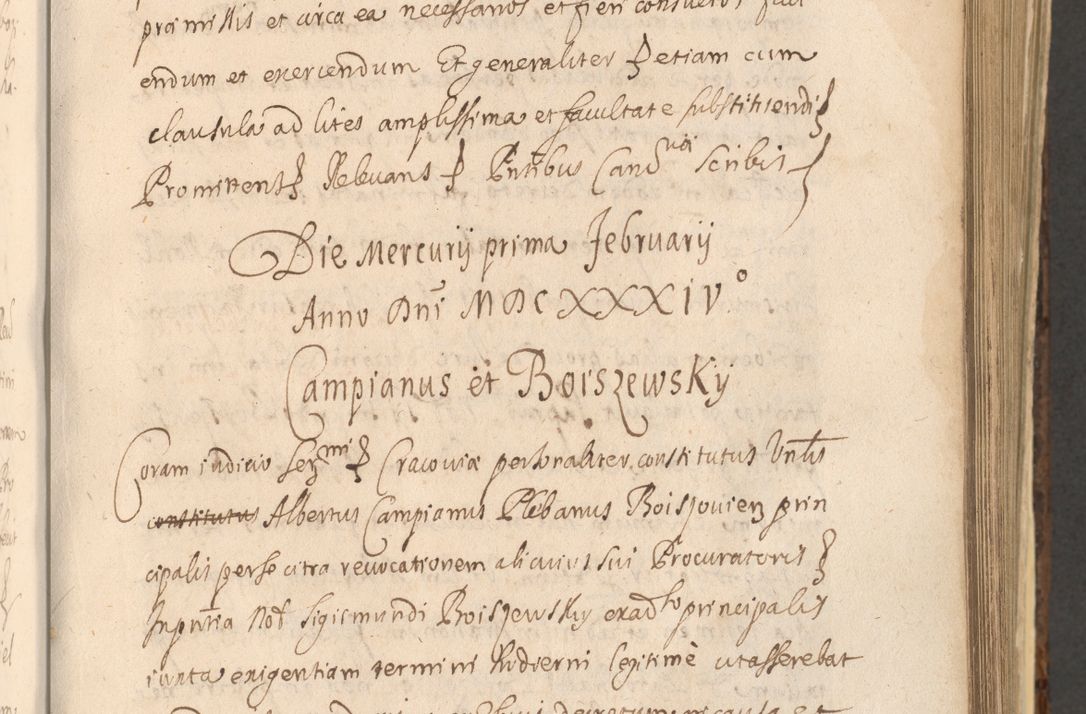 præmissis et circa ea necessarios et fieri consuetos faci
endum et exercendum Et generaliter etiam cum
clausula ad lites amplissima et facultate substituendi
Promittens Relevans Pntibus Canc scribis
Die Mercurij prima Februarij
Anno Dni MDCXXXIV°
Campianus et Boiszewsky
Coram iudicio Cracoviæ personaliter constitutus Vnlis
constitutus Albertus Campianus Plebanus Boisjovien prin
cipalis per se citra revocationem alicuius sui Procuratoris
In pntia Nob Sigismundi Boisjewsky ex adto principalis
iuxta exigentiam termini hodierni legitimè ut asserebat